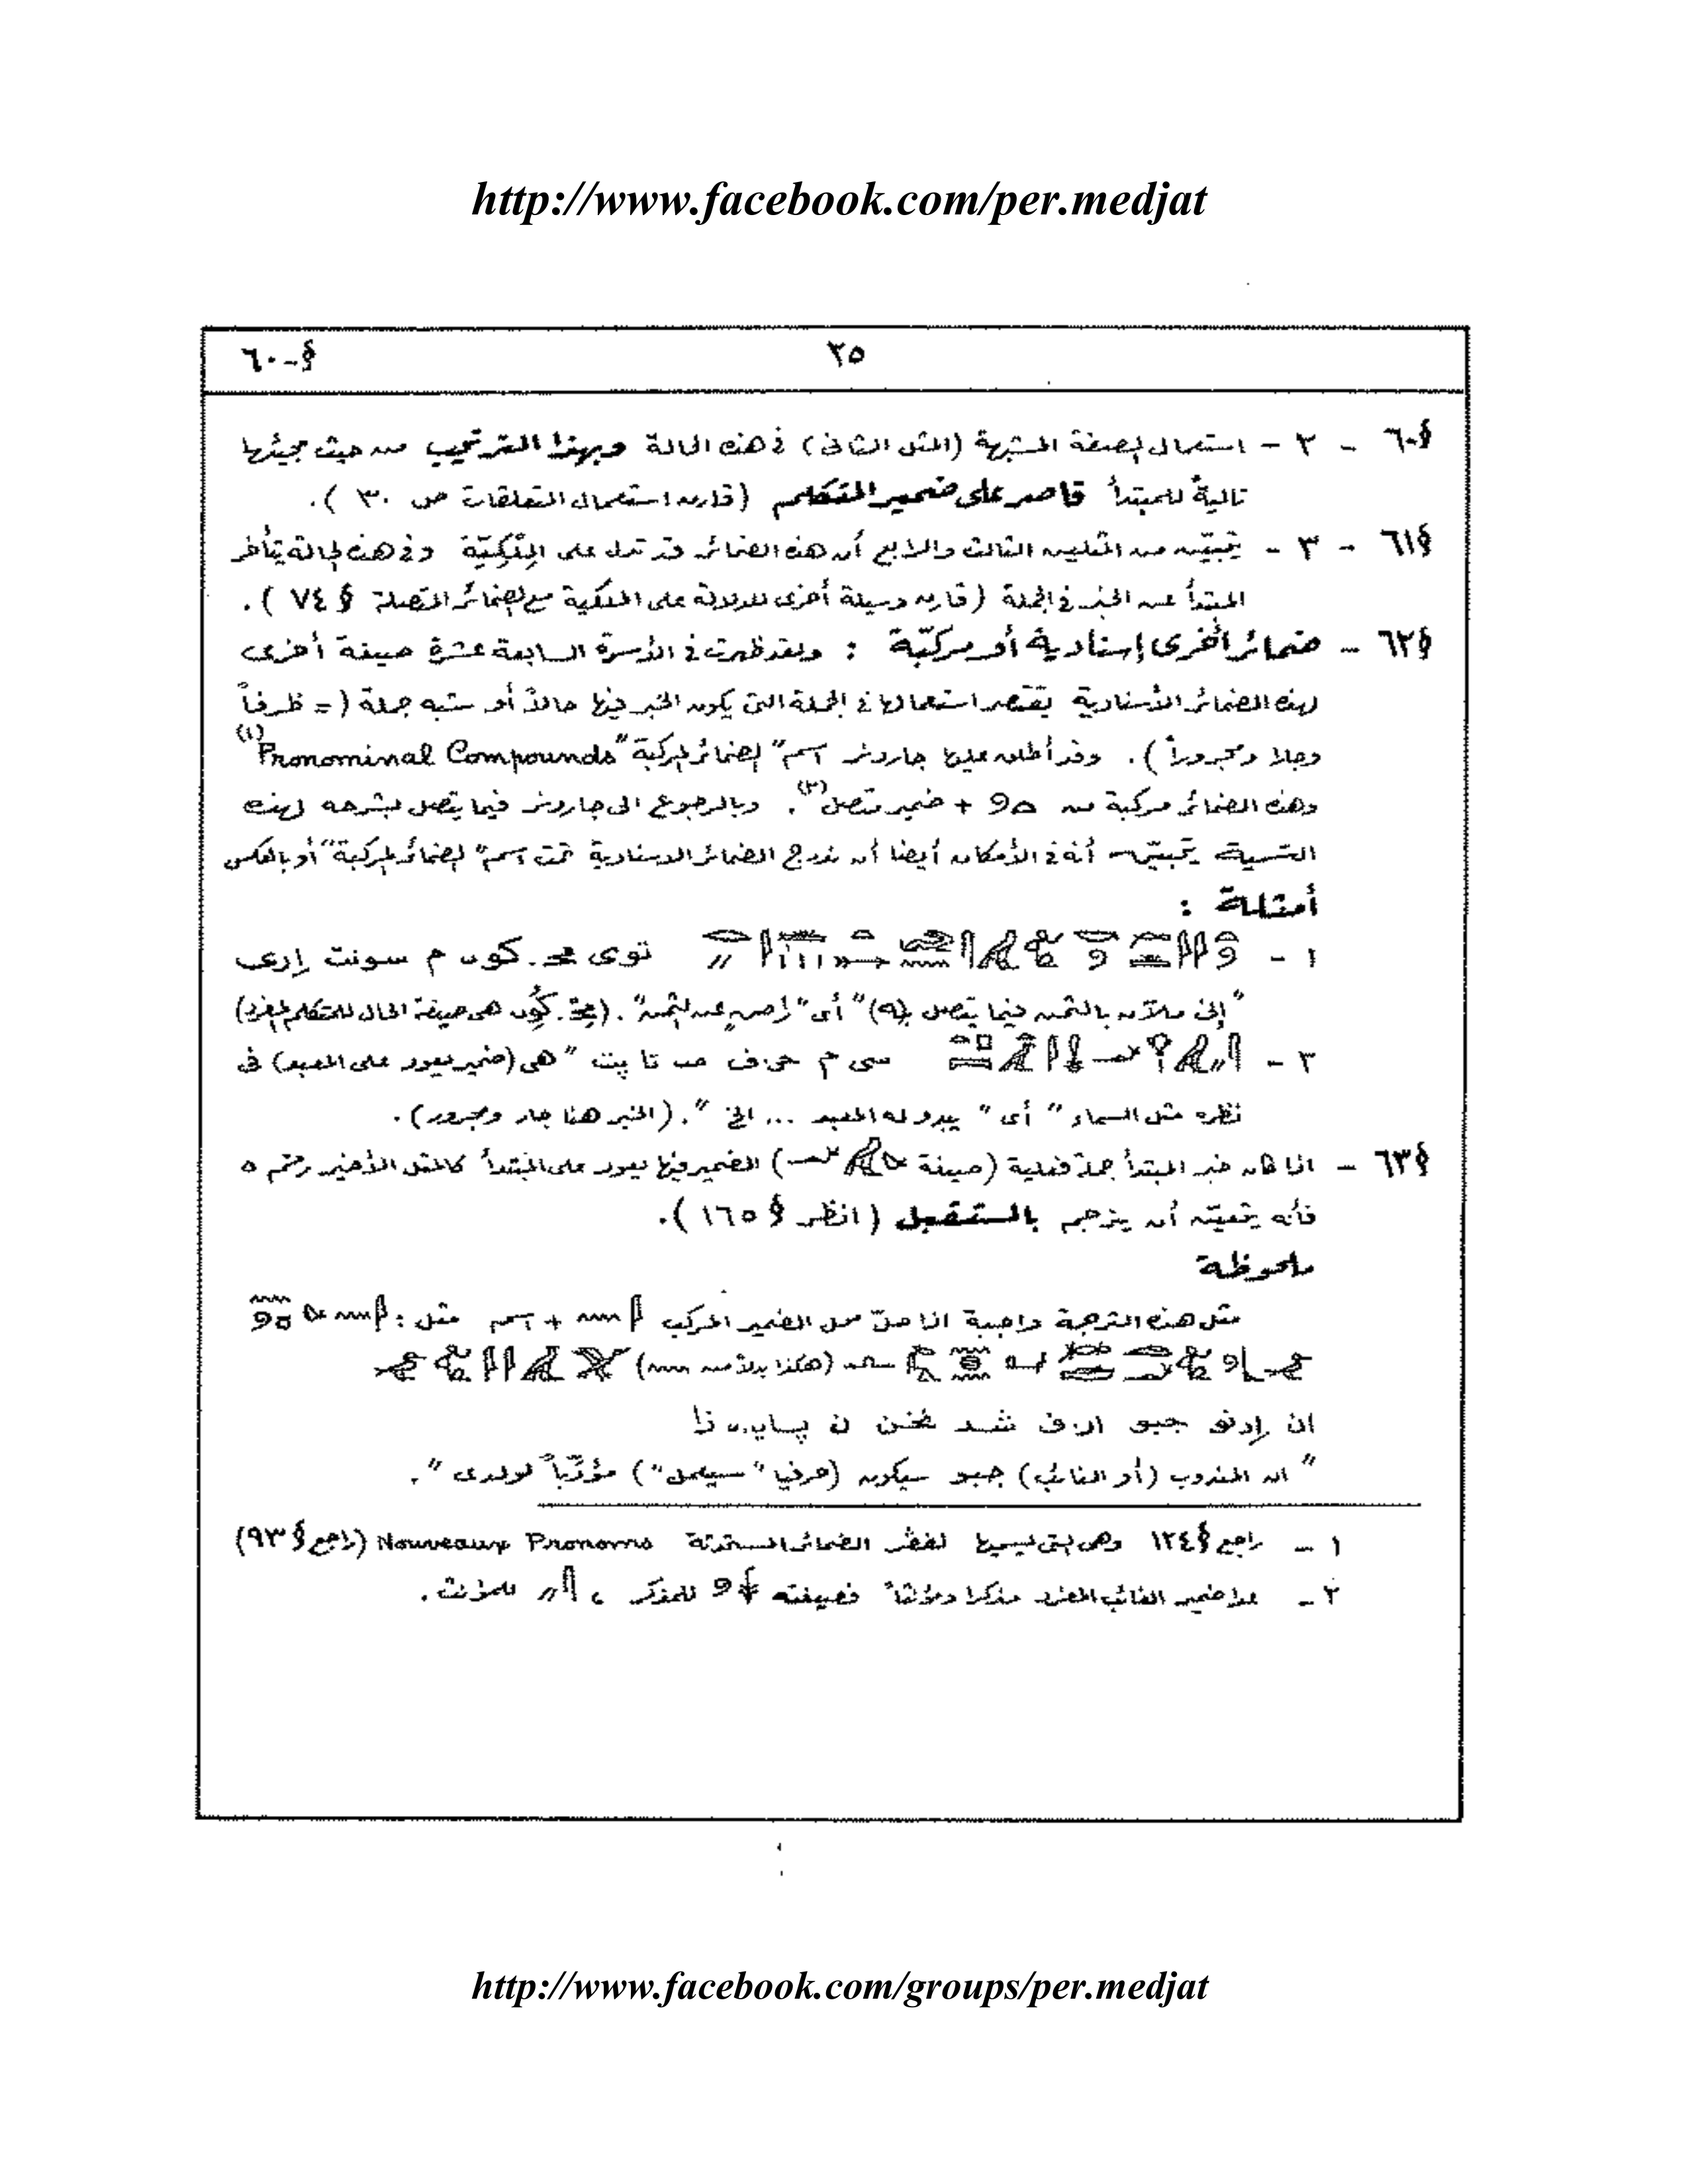 http://www.facebook.com/per.medjat
§-٦٠
٢٥
§٦٠ - ٢ - استعمال الصفة المشبهة (المثل الثانى) فى هذه الحالة وبهذا الترتيب من حيث مجيئها
تالية للمبتدأ قاصر على ضمير المتكلم (قارن استعمال المتعلقات ص ٣٠).
§٦١ - ٣ - يتبيّن من المثلين الثالث والرابع أن هذه الضمائر قد تدل على الملكيّة وفى هذه الحالة يتأخر
المبتدأ عن الخبر فى الجملة (قارن وسيلة أخرى للدلالة على الملكية مع الضمائر المتصلة §٧٤).
§٦٢ - ضمائر أخرى إسنادية أو مركبّة : ولقد ظهرت فى الأسرة السابعة عشرة صيغة أخرى
لهذه الضمائر الأسنادية يقتصر استعمالها فى الجملة التى يكون الخبر فيها حالاً أو شبه جملة (= ظرفاً
وجارا ومجروراً). وقد أطلق عليها جاردنر اسم "الضمائر المركبة" Pronominal Compounds (١)
وهذه الضمائر مركبة من + ضمير متصل (٢). وبالرجوع الى جاردنر فيما يتصل بشرحه لهذه
التسمية يتبيّن أنه فى الأمكان أيضا أن ندرج الضمائر الاسنادية تحت اسم "الضمائر المركبة" أو بالعكس
أمثلة :
١ - توى كون م سونت إرى
"إنى ملآن بالثمن فيما يتصل (به)" أى "راضٍ عن الثمن". ( هى صيغة الحال للمتكلم المفرد)
٢ - سى م حر.ف تا پت "هى (ضمير يعود على المعبد) فى
نظره مثل السماء" أى "يبدو له المعبد ... الخ". (الخبر هنا جار ومجرور).
§٦٣ - اذا كان خبر المبتدأ جملة فعلية (صيغة ) الضمير فيها يعود على المبتدأ كالمثل الأخير رقم ٥
فأنه يتعيّن أن يترجم بالمستقبل (انظر §١٦٥).
ملحوظة
مثل هذه الترجمة واجبة اذا حلّ محل الضمير المركب + اسم مثل :
(هكذا بدلا من )
ان إدنو جبو ار.ف شد ن پاى.
"ان المندوب (أو النائب) جبو سيكون (حرفيا "سيعمل") مؤدّباً لولدى".
١ - راجع §١٢٤ وهى التى يسميها لففر الضمائر المستحدثة Nouveaux Pronoms (راجع §٩٣)
٢ - عدا ضمير الغائب المفرد مذكرا ومؤنثا فصيغته للمذكر ، للمؤنث.
http://www.facebook.com/groups/per.medjat